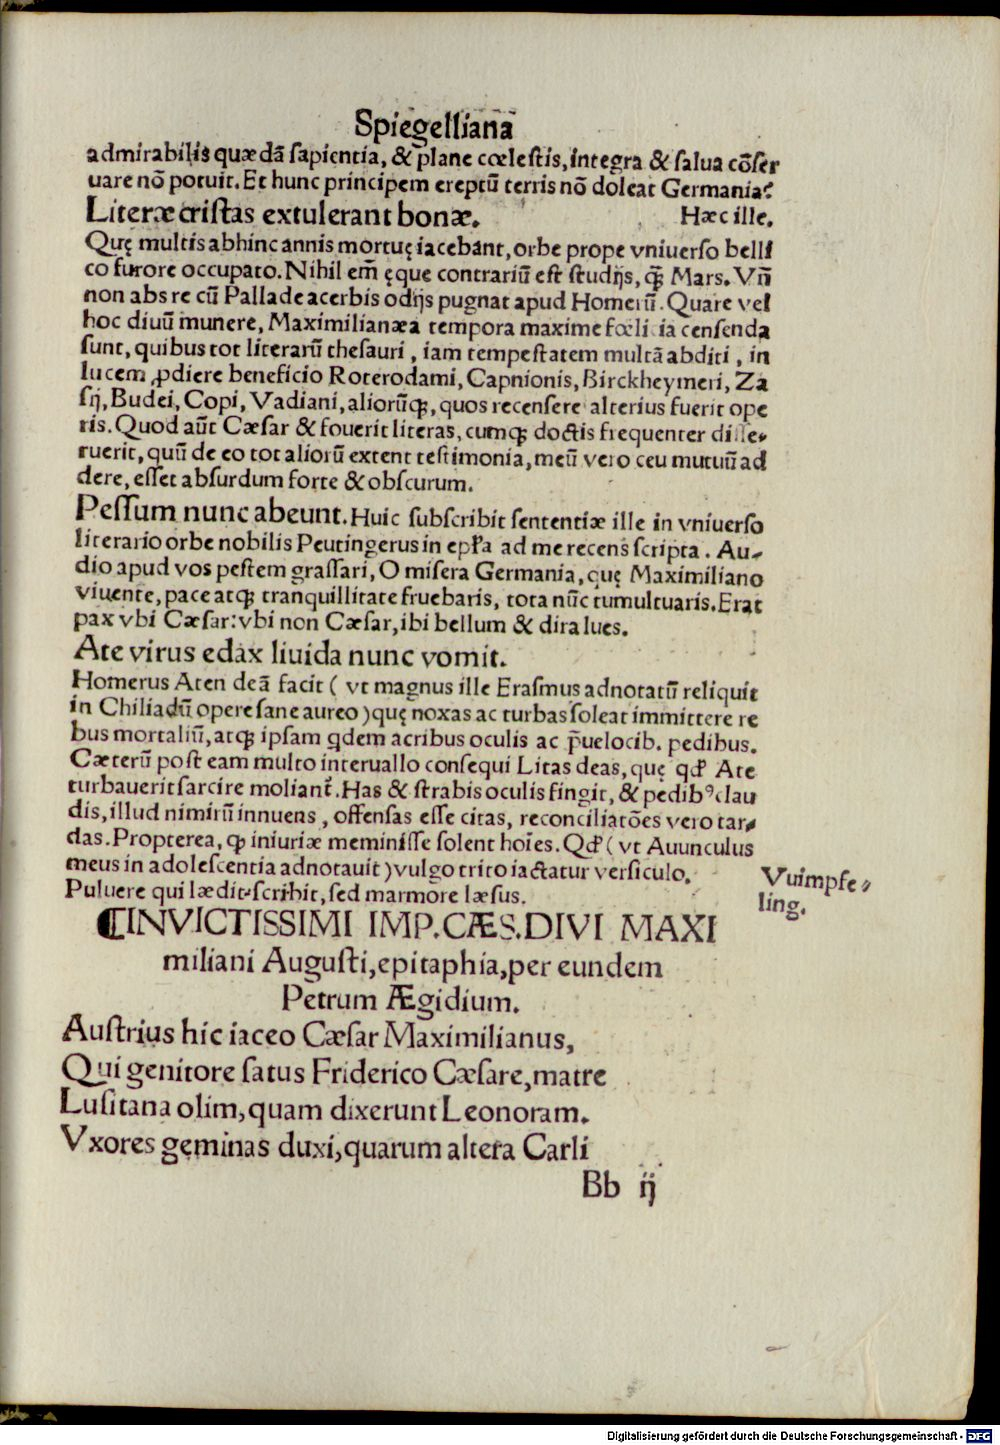 Spiegelliana
admirabilis quædā sapientia, & plane cœlestis, integra & salua cōser
uare nō potuit. Et hunc principem ereptū terris nō doleat Germania?
Literæ cristas extulerant bonæ. Hæc ille.
Quę multis abhinc annis mortuę iacebant, orbe prope vniuerso belli
co furore occupato. Nihil em̄ ęque contrariū est studijs, q̄ꝫ Mars. Vn̄
non abs re cū Pallade acerbis odijs pugnat apud Homerū. Quare vel
hoc diuū munere, Maximilianæa tempora maxime fœlicia censenda
sunt, quibus tot literarū thesauri, iam tempestatem multā abditi, in
lucem ꝓdiere beneficio Roterodami, Capnionis, Birckheymeri, Za
sij, Budei, Copi, Vadiani, aliorūqꝫ, quos recensere alterius fuerit ope
ris. Quod aūt Cæsar & fouerit literas, cumqꝫ doctis frequenter disse⸗
ruerit, quū de eo tot aliorū extent testimonia, meū vero ceu mutuū ad
dere, esset absurdum forte & obscurum.
Pessum nunc abeunt. Huic subscribit sententiæ ille in vniuerso
literario orbe nobilis Peutingerus in epl̄a ad me recens scripta. Au⸗
dio apud vos pestem grassari, O misera Germania, quę Maximiliano
viuente, pace atqꝫ tranquillitate fruebaris, tota nūc tumultuaris. Erat
pax vbi Cæsar: vbi non Cæsar, ibi bellum & dira lues.
Ate virus edax liuida nunc vomit.
Homerus Aten deā facit ( vt magnus ille Erasmus adnotatū reliquit
in Chiliadū opere sane aureo ) quę noxas ac turbas soleat immittere re
bus mortaliū, atqꝫ ipsam qdem acribus oculis ac p̄uelocib. pedibus.
Cæterū post eam multo interuallo consequi Litas deas, quę qđ Ate
turbauerit sarcire moliant̄. Has & strabis oculis fingit, & pedibꝰ clau
dis, illud nimirū innuens, offensas esse citas, reconciliatōes vero tar⸗
das. Propterea, qꝫ iniuriæ meminisse solent hoīes. Qđ ( vt Auunculus
meus in adolescentia adnotauit ) vulgo trito iactatur versiculo.
Puluere qui lædit scribit, sed marmore læsus.
Vuimpfe⸗
ling.
⸿INVICTISSIMI IMP. CÆS. DIVI MAXI
miliani Augusti, epitaphia, per eundem
Petrum Ægidium.
Austrius hic iaceo Cæsar Maximilianus,
Qui genitore satus Friderico Cæsare, matre
Lusitana olim, quam dixerunt Leonoram.
Vxores geminas duxi, quarum altera Carli
Bb ij
Digitalisierung gefördert durch die Deutsche Forschungsgemeinschaft - DFG